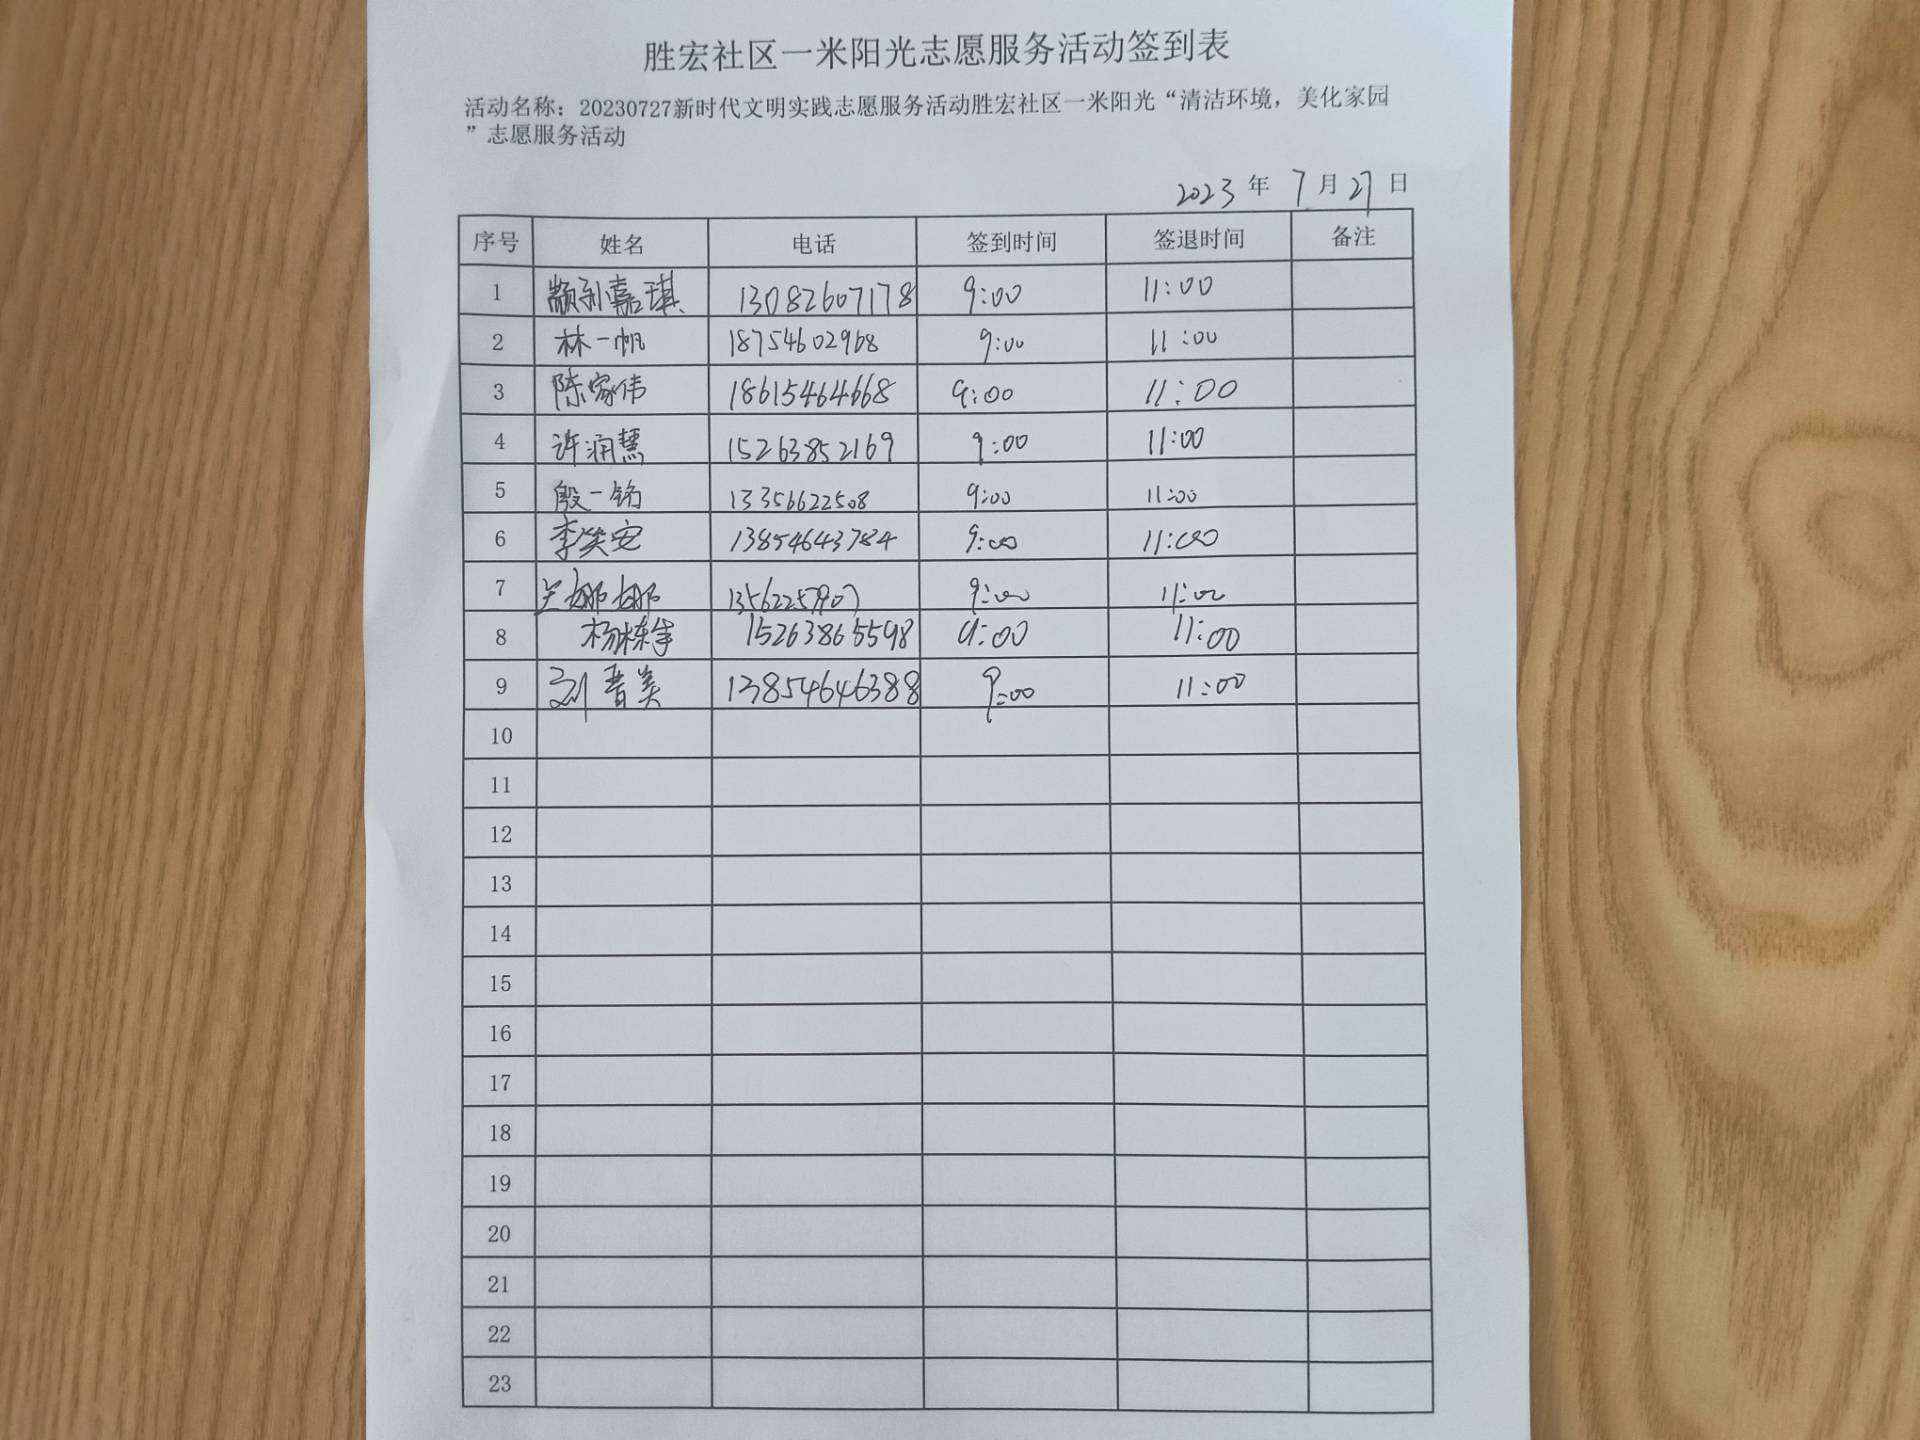 胜宏社区一米阳光志愿服务活动签到表
活动名称：20230727新时代文明实践志愿服务活动胜宏社区一米阳光“清洁环境，美化家园
”志愿服务活动
2023 年 7 月 27 日
序号 姓名 电话 签到时间 签退时间 备注
1 颛孙嘉琪 13082607178 9:00 11:00
2 林一帆 18754602968 9:00 11:00
3 陈家伟 18615464668 9:00 11:00
4 许润慧 15263852169 9:00 11:00
5 殷一铭 13356622508 9:00 11:00
6 李笑安 13854643784 9:00 11:00
7 兰娜娜 9:00 11:00
8 杨栋 15263865598 9:00 11:00
9 刘晋美 13854646388 9:00 11:00
10
11
12
13
14
15
16
17
18
19
20
21
22
23